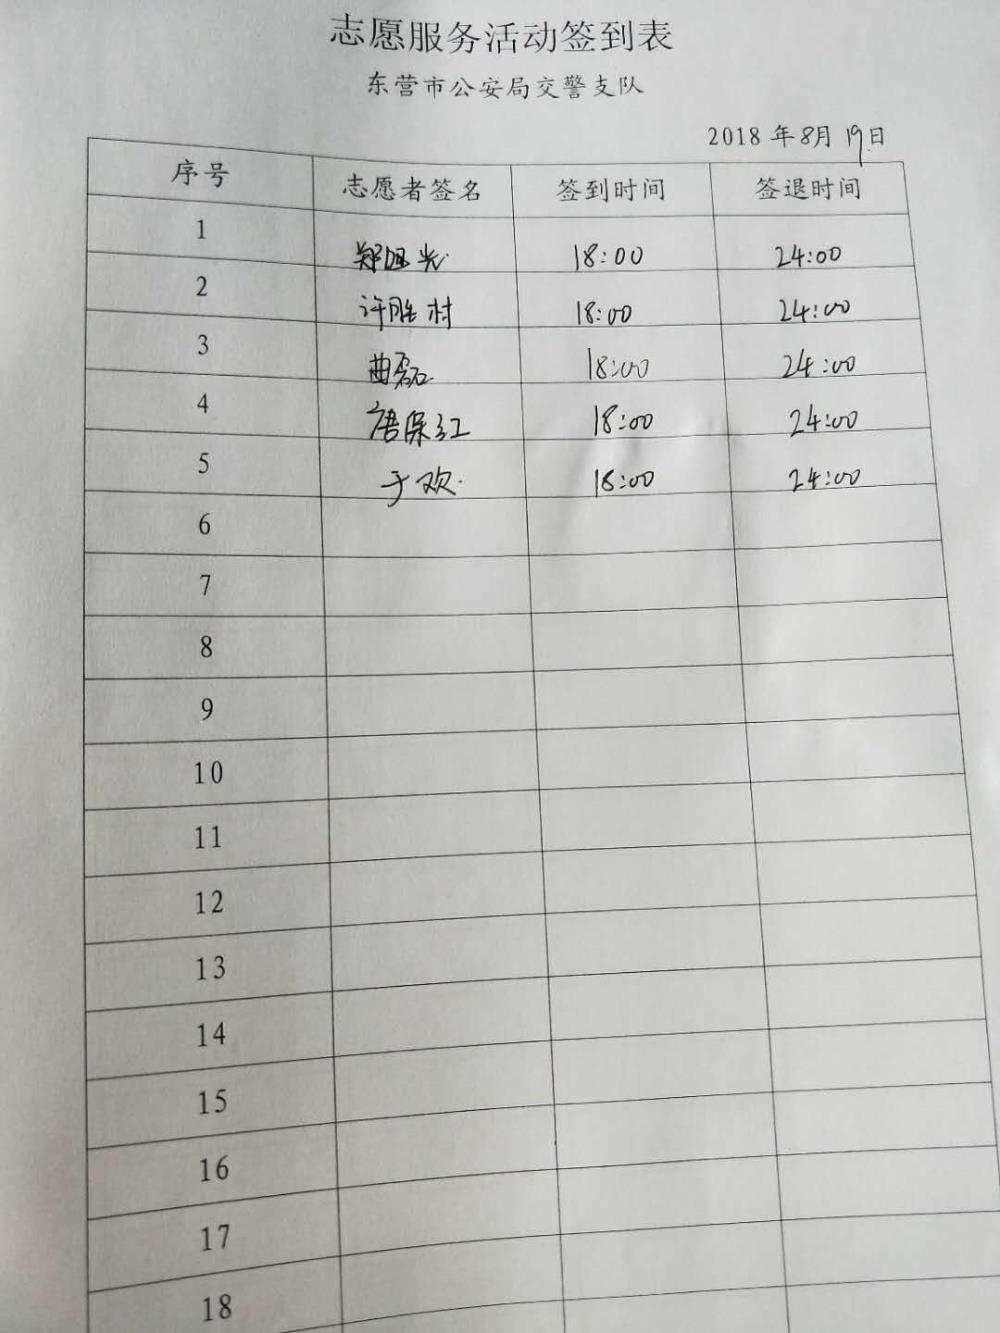 志愿服务活动签到表
东营市公安局交警支队
2018 年 8月 19日
序号 志愿者签名 签到时间 签退时间
1 郑旭光 18:00 24:00
2 许胜村 18:00 24:00
3 曲磊 18:00 24:00
4 唐保红 18:00 24:00
5 于欢 18:00 24:00
6
7
8
9
10
11
12
13
14
15
16
17
18